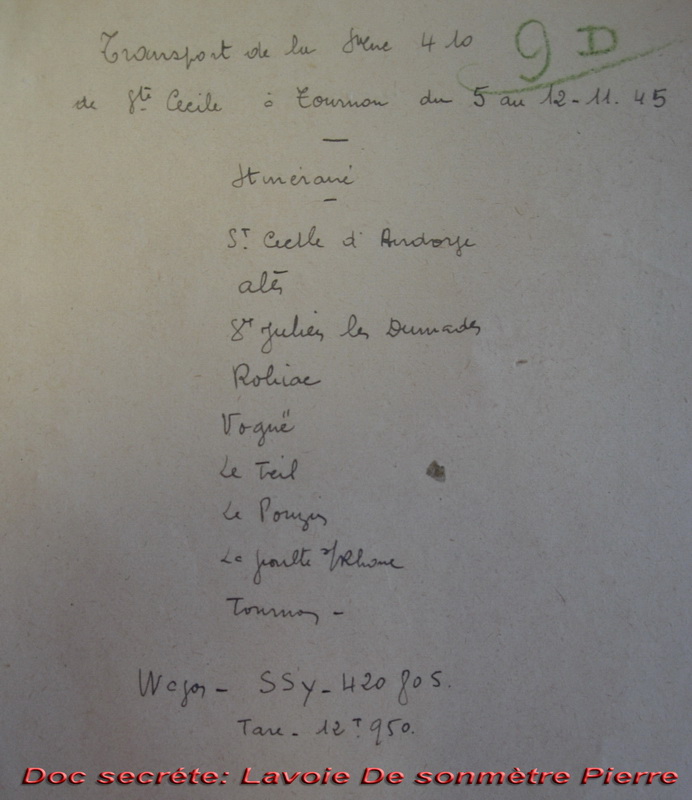 Transport de la 410
9 D
de Ste Cecile à Tournon du 5 au 12-11. 45
Itinéraire
St Cecile d'Andorge
alès
St Julien les Dumades
Robiac
Voguë
Le Teil
Le Pouzin
La poulte s/Rhone
Tournon -
Wagon - SSy - 420 805.
Tare - 12T 950.
Doc secréte: Lavoie De sonmètre Pierre